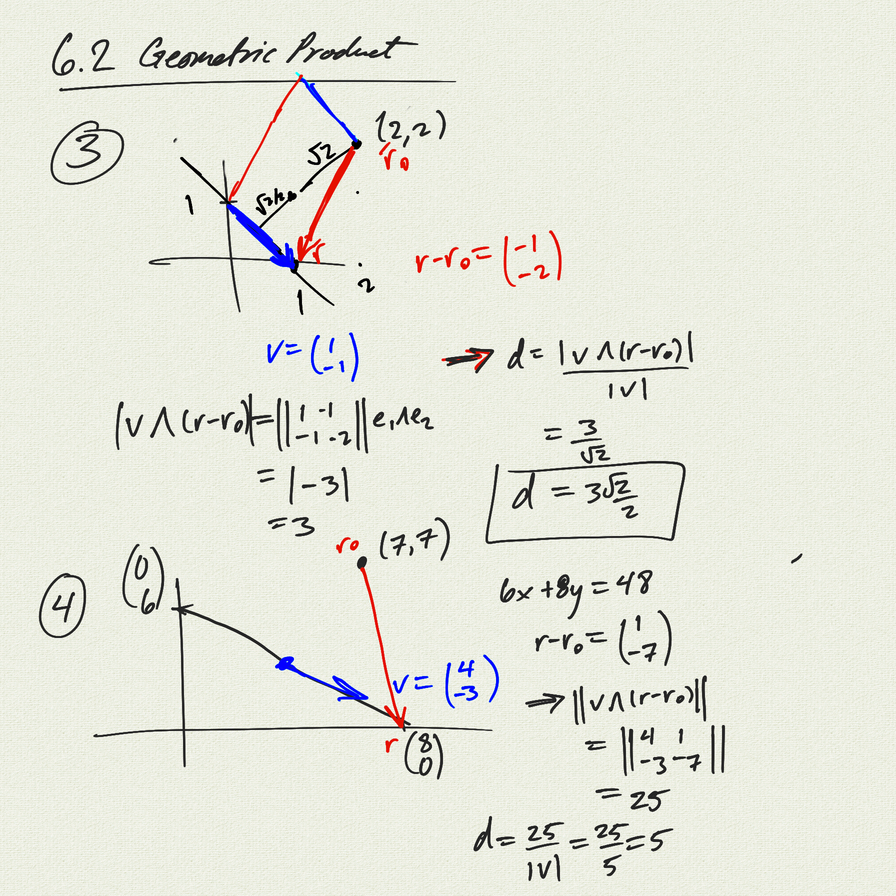 6.2 Geometric Product
③
(2,2)
r₀
√2
√2/2
1
r
1
2
r-r₀ = (-1 -2)
v = (1 -1)
→ d = |v∧(r-r₀)| / |v|
|v∧(r-r₀)| = ||1 -1 -1 -2|| e₁∧e₂
= 3/√2
= |-3|
d = 3√2/2
= 3
④
(0 6)
r₀ (7,7)
6x+8y=48
r-r₀ = (1 -7)
v = (4 -3)
→ ||v∧(r-r₀)||
= ||4 1 -3 -7||
r (8 0)
= 25
d = 25/|v| = 25/5 = 5